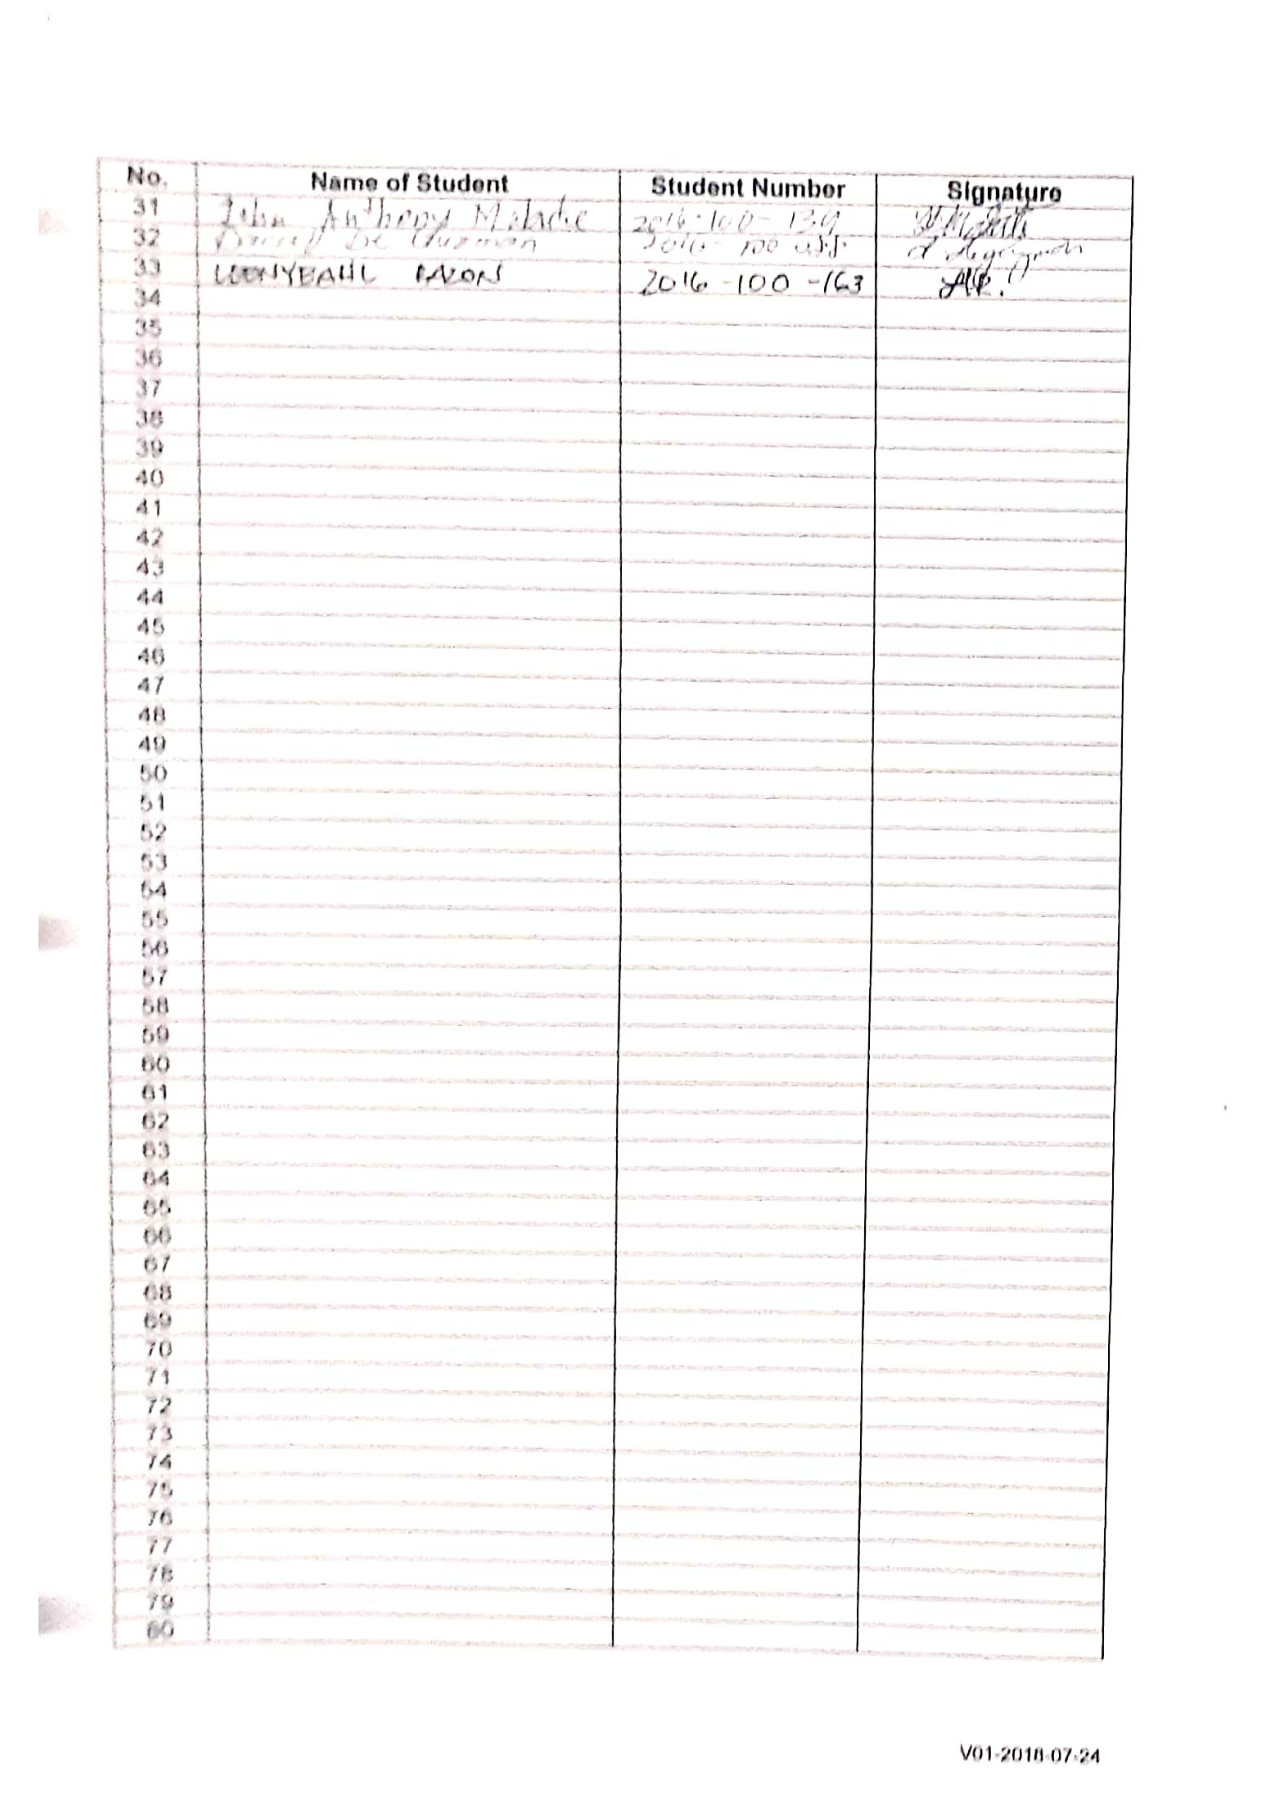 No. Name of Student Student Number Signature
31 John Anthony 2016-100-139
32 De Guzman
33 2016-100-163
34
35
36
37
38
39
40
41
42
43
44
45
46
47
48
49
50
51
52
53
54
55
56
57
58
59
60
61
62
63
64
65
66
67
68
69
70
71
72
73
74
75
76
77
78
79
60
V01-2018-07-24